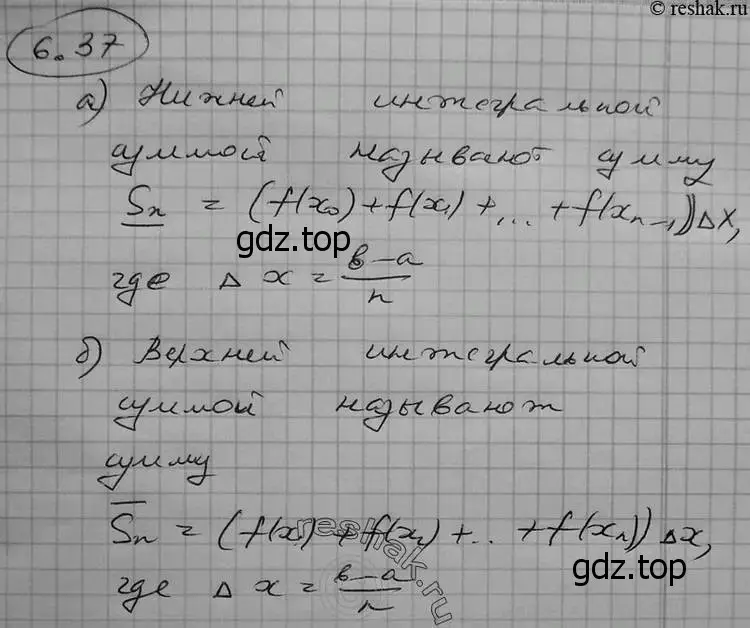 © reshak.ru
6.37
а) Нижней интегральной
суммой называют сумму
Sn = (f(x₀)+f(x₁)+...+f(xₙ₋₁))Δx,
gdz.top
где Δx = в-а/n
б) Верхней интегральной
суммой называют
сумму
S̅n = (f(x₁)+f(x₂)+..+f(xₙ))Δx,
reshak.ru
где Δx = в-а/n
gdz.top